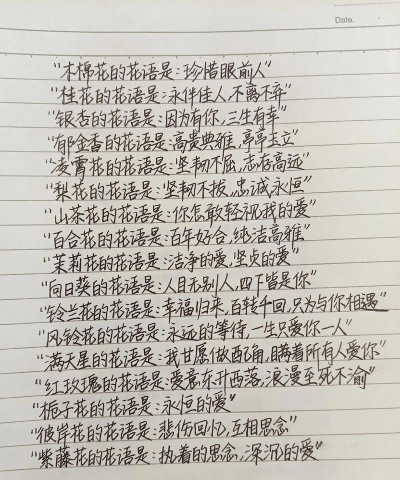 Date.
"木棉花的花语是:珍惜眼前人"
"桂花的花语是:永伴佳人,不离不弃"
"银杏的花语是:因为有你,三生有幸"
"郁金香的花语是:高贵典雅,亭亭玉立"
"凌霄花的花语是:坚韧不屈,志存高远"
"梨花的花语是:坚韧不拔,忠诚永恒"
"山茶花的花语是:你怎敢轻视我的爱"
"百合花的花语是:百年好合,纯洁高雅"
"茉莉花的花语是:洁净的爱,坚贞的爱"
"向日葵的花语是:入目无别人,四下皆是你"
"铃兰花的花语是:幸福归来,百转千回,只为与你相遇"
"风铃花的花语是:永远的等待,一生只爱你一人"
"满天星的花语是:我甘愿做配角,瞒着所有人爱你"
"红玫瑰的花语是:爱意东升西落,浪漫至死不渝"
"栀子花的花语是:永恒的爱"
"彼岸花的花语是:悲伤回忆,互相思念"
"紫藤花的花语是:执着的思念,深沉的爱"